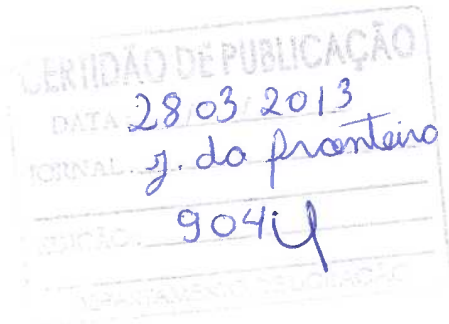 CERTIDÃO DE PUBLICAÇÃO
DATA 28 03 2013
JORNAL. J. da Fronteira
EDIÇÃO. 904
DEPARTAMENTO DE LICITAÇÃO